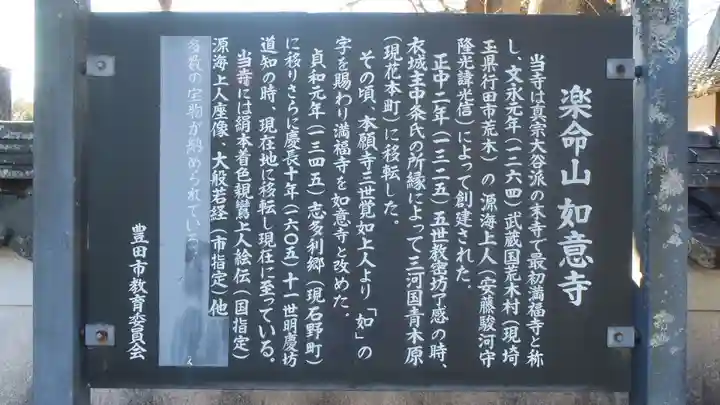 楽命山 如意寺
当寺は真宗大谷派の末寺で最初満福寺と称
し、文永元年(一二六四)武蔵国荒木村(現埼
玉県行田市荒木)の源海上人(安藤駿河守
隆光諱光信)によって創建された。
正中二年(一三二五)五世教密坊了感の時、
衣城主中条氏の所縁によって三河国青木原
(現花本町)に移転した。
その頃、本願寺三世覚如上人より「如」の
字を賜わり満福寺を如意寺と改めた。
貞和元年(一三四五)志多利郷(現石野町)
に移りさらに慶長十年(一六〇五)十一世明慶坊
道知の時、現在地に移転し現在に至っている。
当寺には絹本着色親鸞上人絵伝(国指定)
源海上人座像、大般若経(市指定)他
多数の宝物が納められている。
豊田市教育委員会